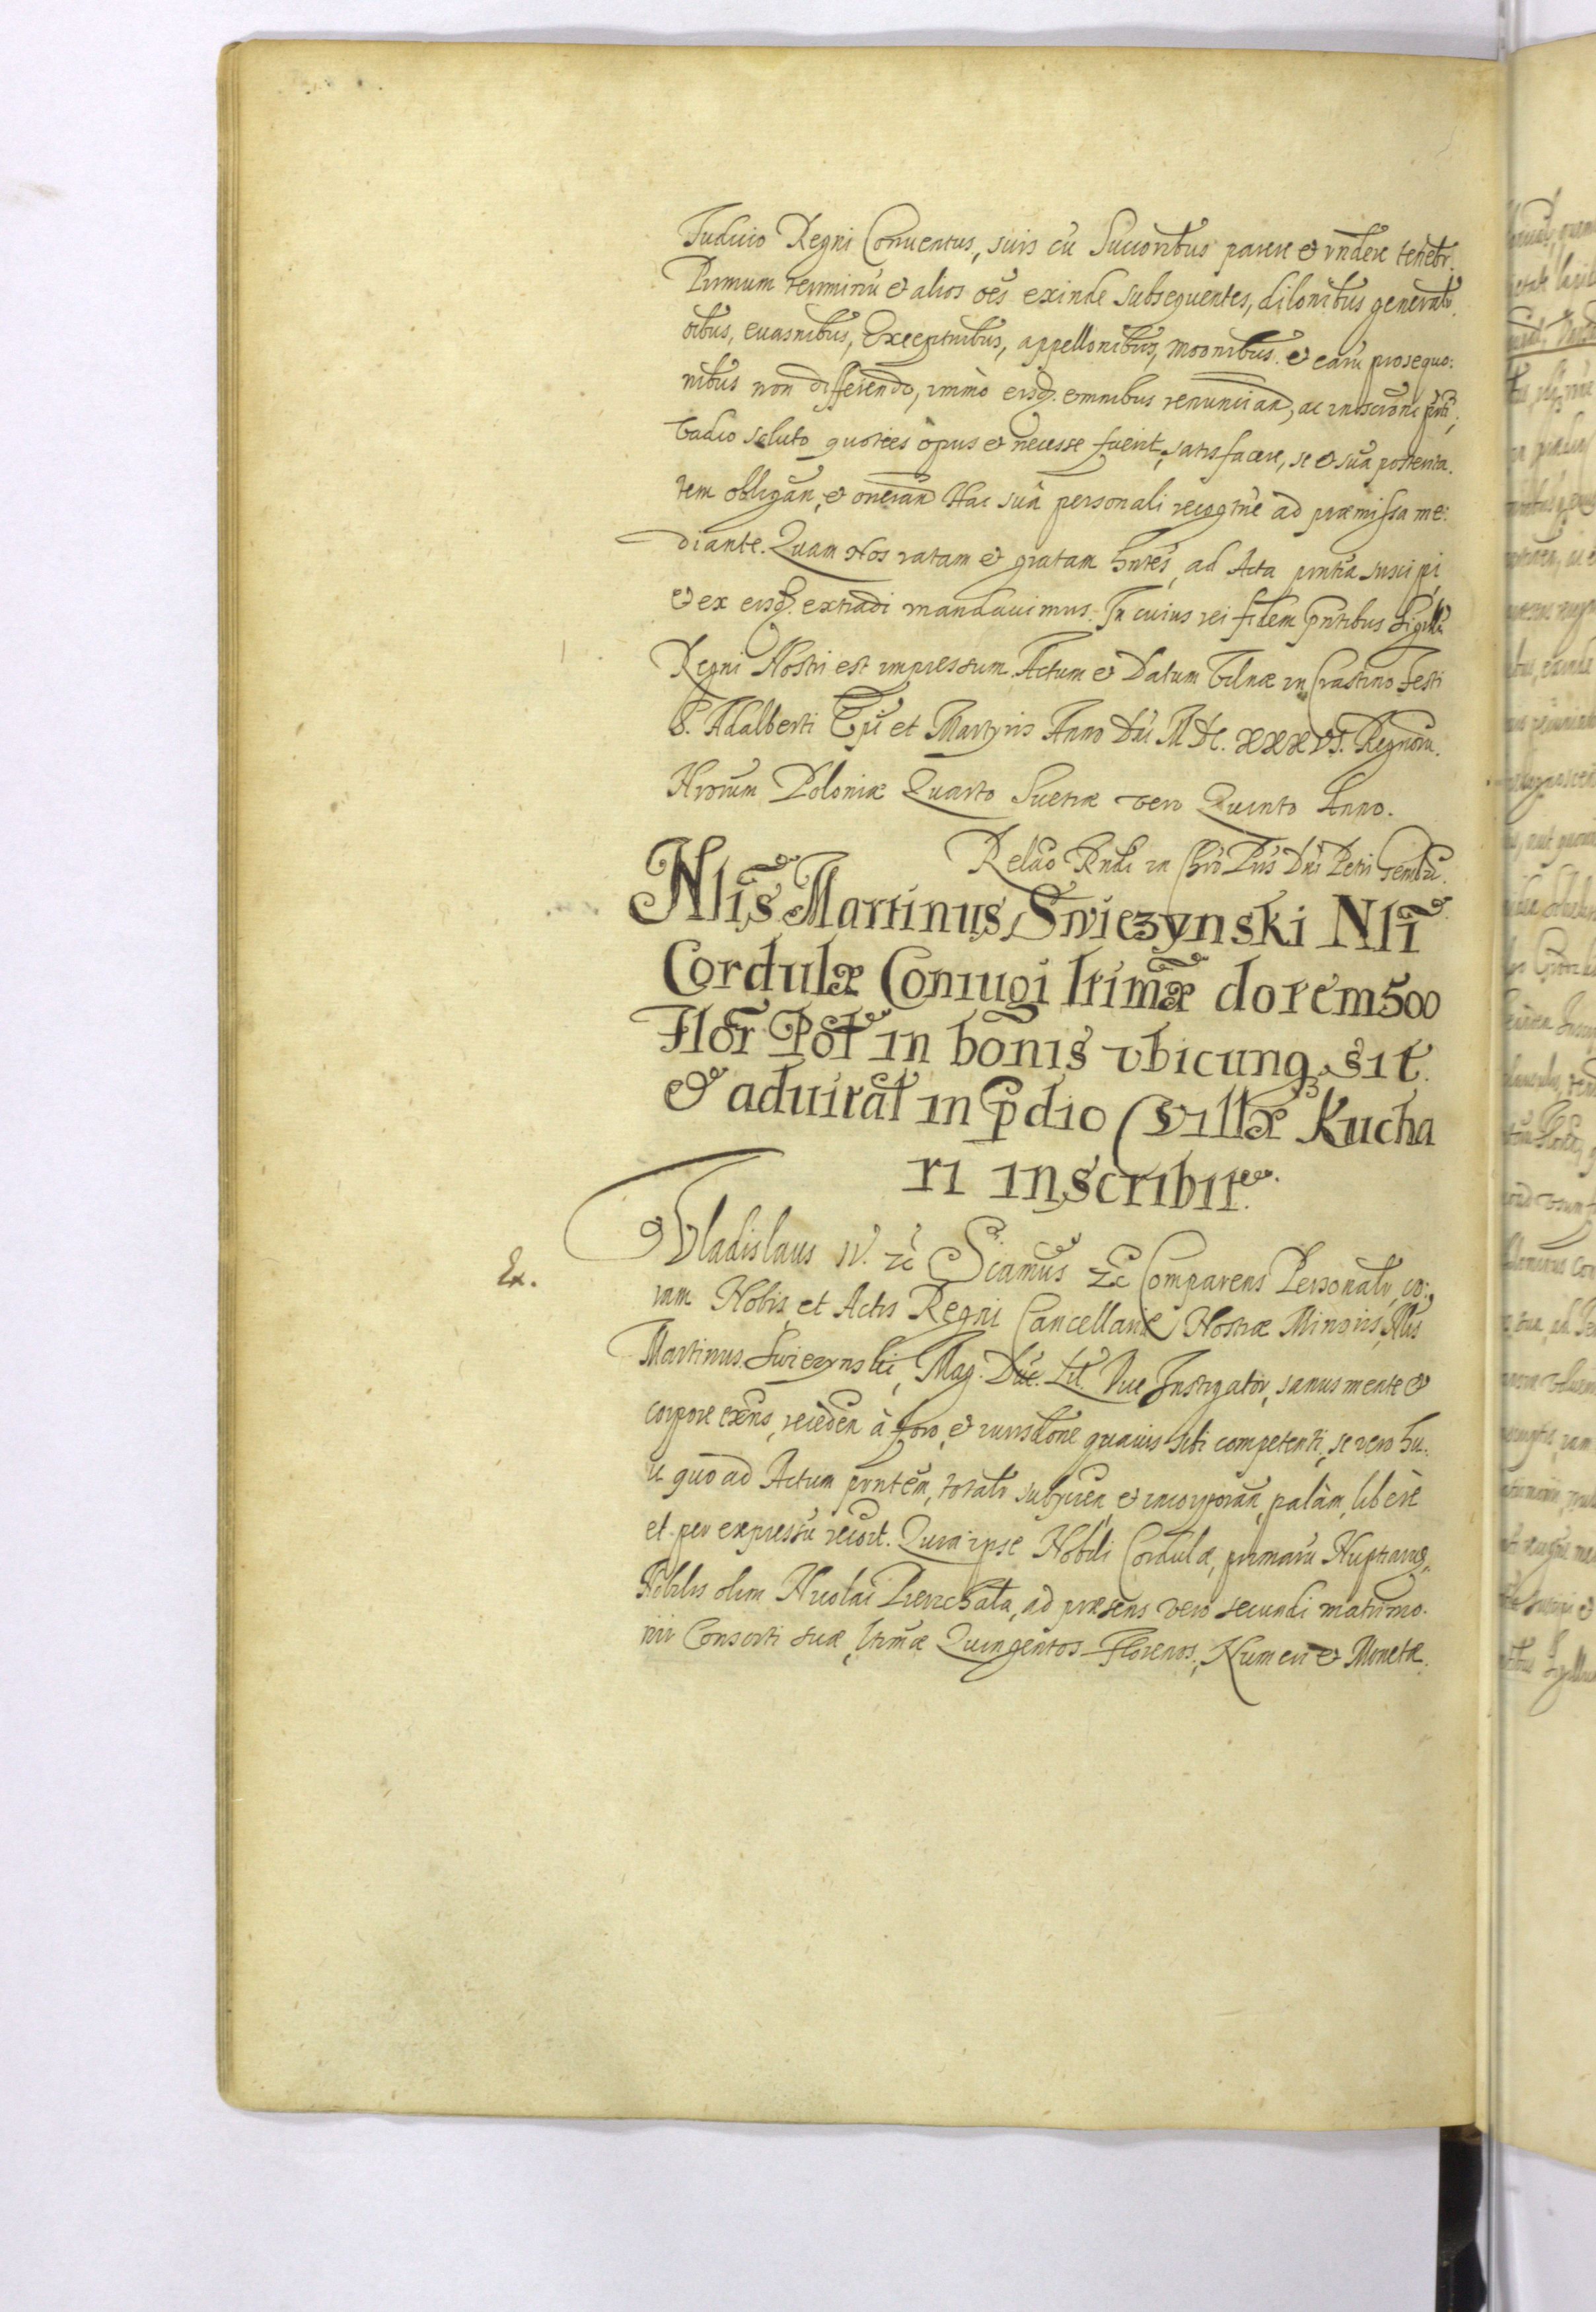 Judicio Regni Conventus, suis cũ Succoribus parere et rndere tenebr.
Primum terminũ et alios oẽs exinde subsequentes, dilonibus generalr.
oĩbus, evasnibus, Exceptnibus, appellonibus, moonibus. et earũ prosequo:
nibus non differendo, immò eisq. omnibus renuncian, ac inscrõni pñti,
vadio soluto quoties opus et necesse fuerit, satisfacere, se et suã posterita.
tem obligan, et oneran Hac suâ personali recogtne ad præmissa me:
diante. Quam Nos ratam et gratam hntes, ad Acta pntia suscipi,
et ex eisq. extradi mandavimus. In cuius rei fidem pntibus Sigillũ
Regni Nostri est impressum. Actum et Datum Vilnæ in Crastino Festi
S. Adalberti Epĩ et Martyris Anno Dñi M DC. XXXVI. Regnorũ.
Nrorum Poloniæ Quarto Suetiæ vero Quinto Anno.
Relão Rndi in Chrõ Pris Dñi Petri Gembi.
Nlis Martinus Swiezynski Nli
Cordulæ Coniugi ltimæ dotem 500
Flor Pol in bonis vbicunq sit
et aduitat in pdio Villæ Kucha
ri inscribit.
Ex.
Vladislaus IV. &c Scamus &c Comparens Personalr, co:
ram Nobis et Actis Regni Cancellariæ Nostræ Minoris, Nlis
Martinus Swiezynski, Mag. Duc. Lit. Vice Instigator, sanus mente et
corpore exns, receden à foro, et iurisdone quauis sibi competenti, se vero hu.
ic quo ad Actum pntem, totalr subyicien, et incorporan, palàm, liberè
et per expressũ recort. Quia ipse Nobili Cordulæ, primarũ Nuptiarũ,
Nobilis olim Nicolai Pierzchała, ad præsens vero secundi matrimo.
nii Consorti suæ, ltimæ Quingentos Florenos, Numeri et Monetæ.